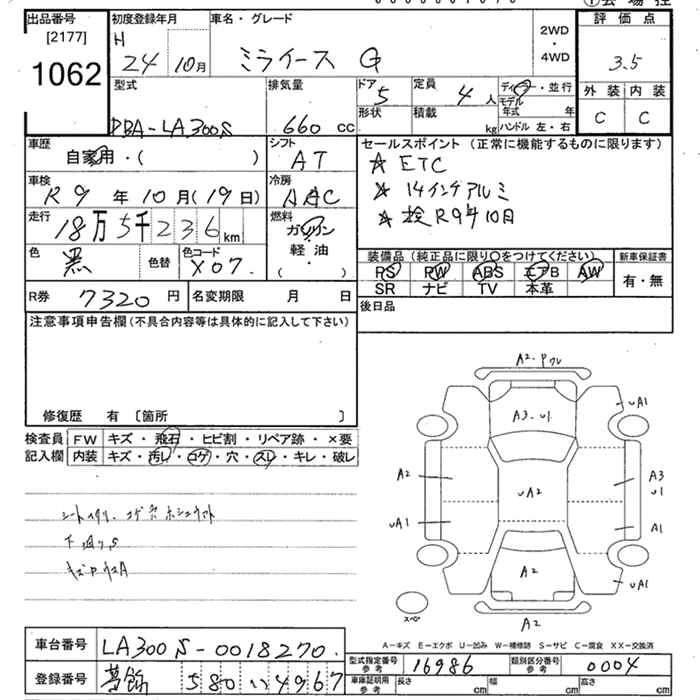 出品番号
[2177]
1062
初度登録年月
H
24 10月
車名・グレード
ミライース G
2WD
・
4WD
評価点
3.5
外装 内装
C C
型式
DBA-LA300S
排気量
660 cc
ドア
5
形状
定員
4 人
積載
kg
ディーラー・並行
モデル
年式 年
ハンドル 左・右
車歴
自家用・( )
シフト
AT
セールスポイント (正常に機能するものに限ります)
☆ ETC
☆ 14インチアルミ
☆ 検R9年10月
車検
R 9 年 10 月(19 日)
冷房
AAC
走行
18万5千236km
燃料
ガソリン
軽油
( )
色
黒
色替
色コード
X07
装備品 (純正品に限り○をつけてください)
PS PW ABS エアB AW
SR ナビ TV 本革
新車保証書
有・無
R券 7320 円
名変期限 月 日
後日品
注意事項申告欄(不具合内容等は具体的に記入して下さい)
修復歴 有 〔箇所 〕
検査員
記入欄
FW キズ・飛石・ヒビ割・リペア跡・×要
内装 キズ・汚レ・コゲ・穴・スレ・キレ・破レ
下廻りS
A2-Pワレ
A3-U1
UA1
A2
UA2
A3
U1
UA1
A1
A2
UA1
スペア
A2
A-キズ E-エクボ U-凹み W-補修跡 S-サビ C-腐食 XX-交換済
車台番号 LA300S-0018270
型式指定番号
参考
16986
類別区分番号
参考
0004
登録番号 葛飾 580 い 4967
車庫証明用
参考
長さ cm 幅 cm 高さ cm